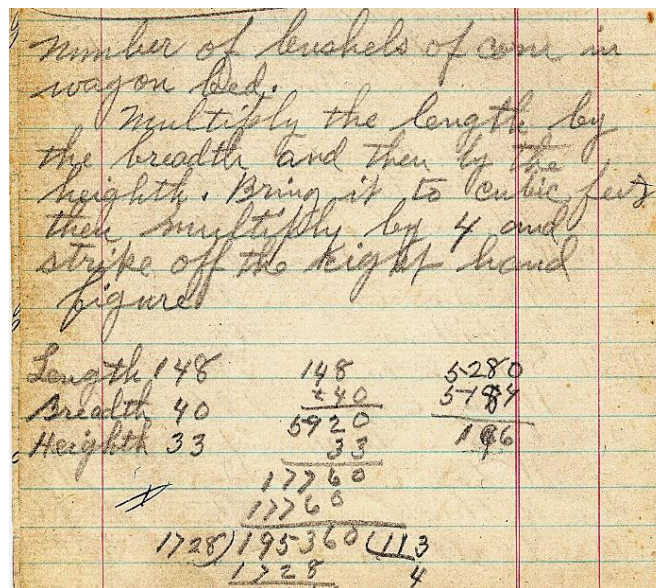 number of bushels of corn in
wagon bed.
Multiply the length by
the breadth and then by the
heighth. Bring it to cubic feet
then multiply by 4 and
strike off the right hand
figure
Length 148 148 5280
Breadth 40 40 5184
Heighth 33 5920 196
33
17760
17760
1728)195360(113
1728 4